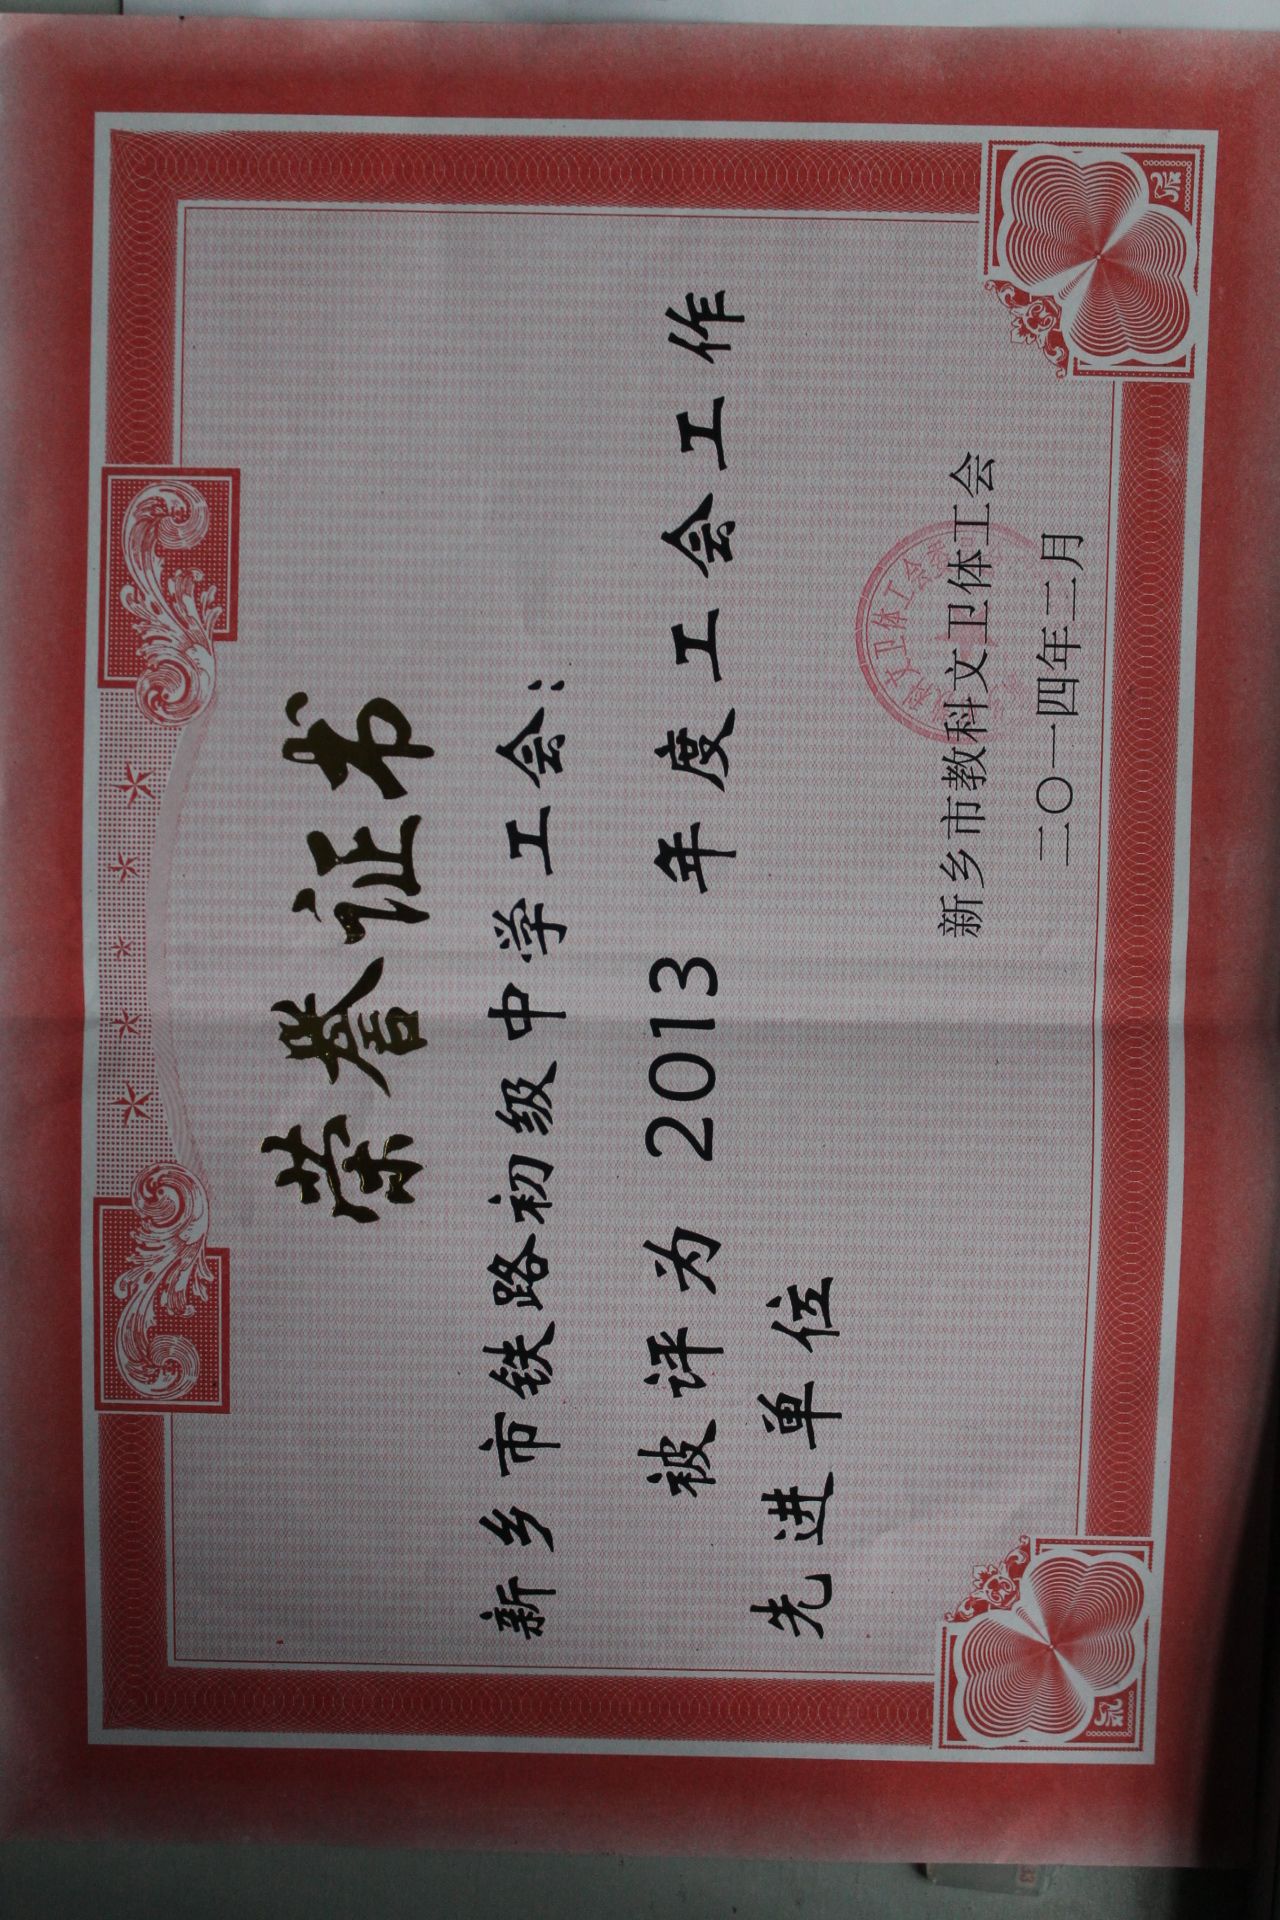 荣誉证书
新乡市铁路初级中学工会:
被评为 2013 年度工会工作
先进单位
新乡市教科文卫体工会
二〇一四年二月